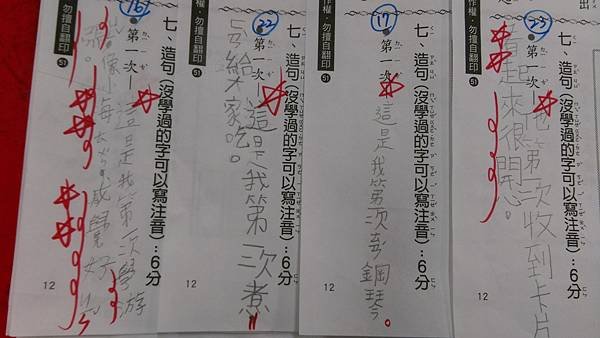 出
23
七、造句(沒學過的字可以寫注音):6分
第一次—
他第一次收到卡片
看起來很開心。
作權・勿擅自翻印 51
12
17
七、造句(沒學過的字可以寫注音):6分
第一次—
這是我第一次鋼琴。
作權・勿擅自翻印 51
12
22
七、造句(沒學過的字可以寫注音):6分
第一次—
這是我第一次煮
給大家吃。
勿擅自翻印 51
12
16
七、造句(沒學過的字可以寫注音):6分
第一次—
這是我第一次學游
像小海感覺好
勿擅自翻印 51
12